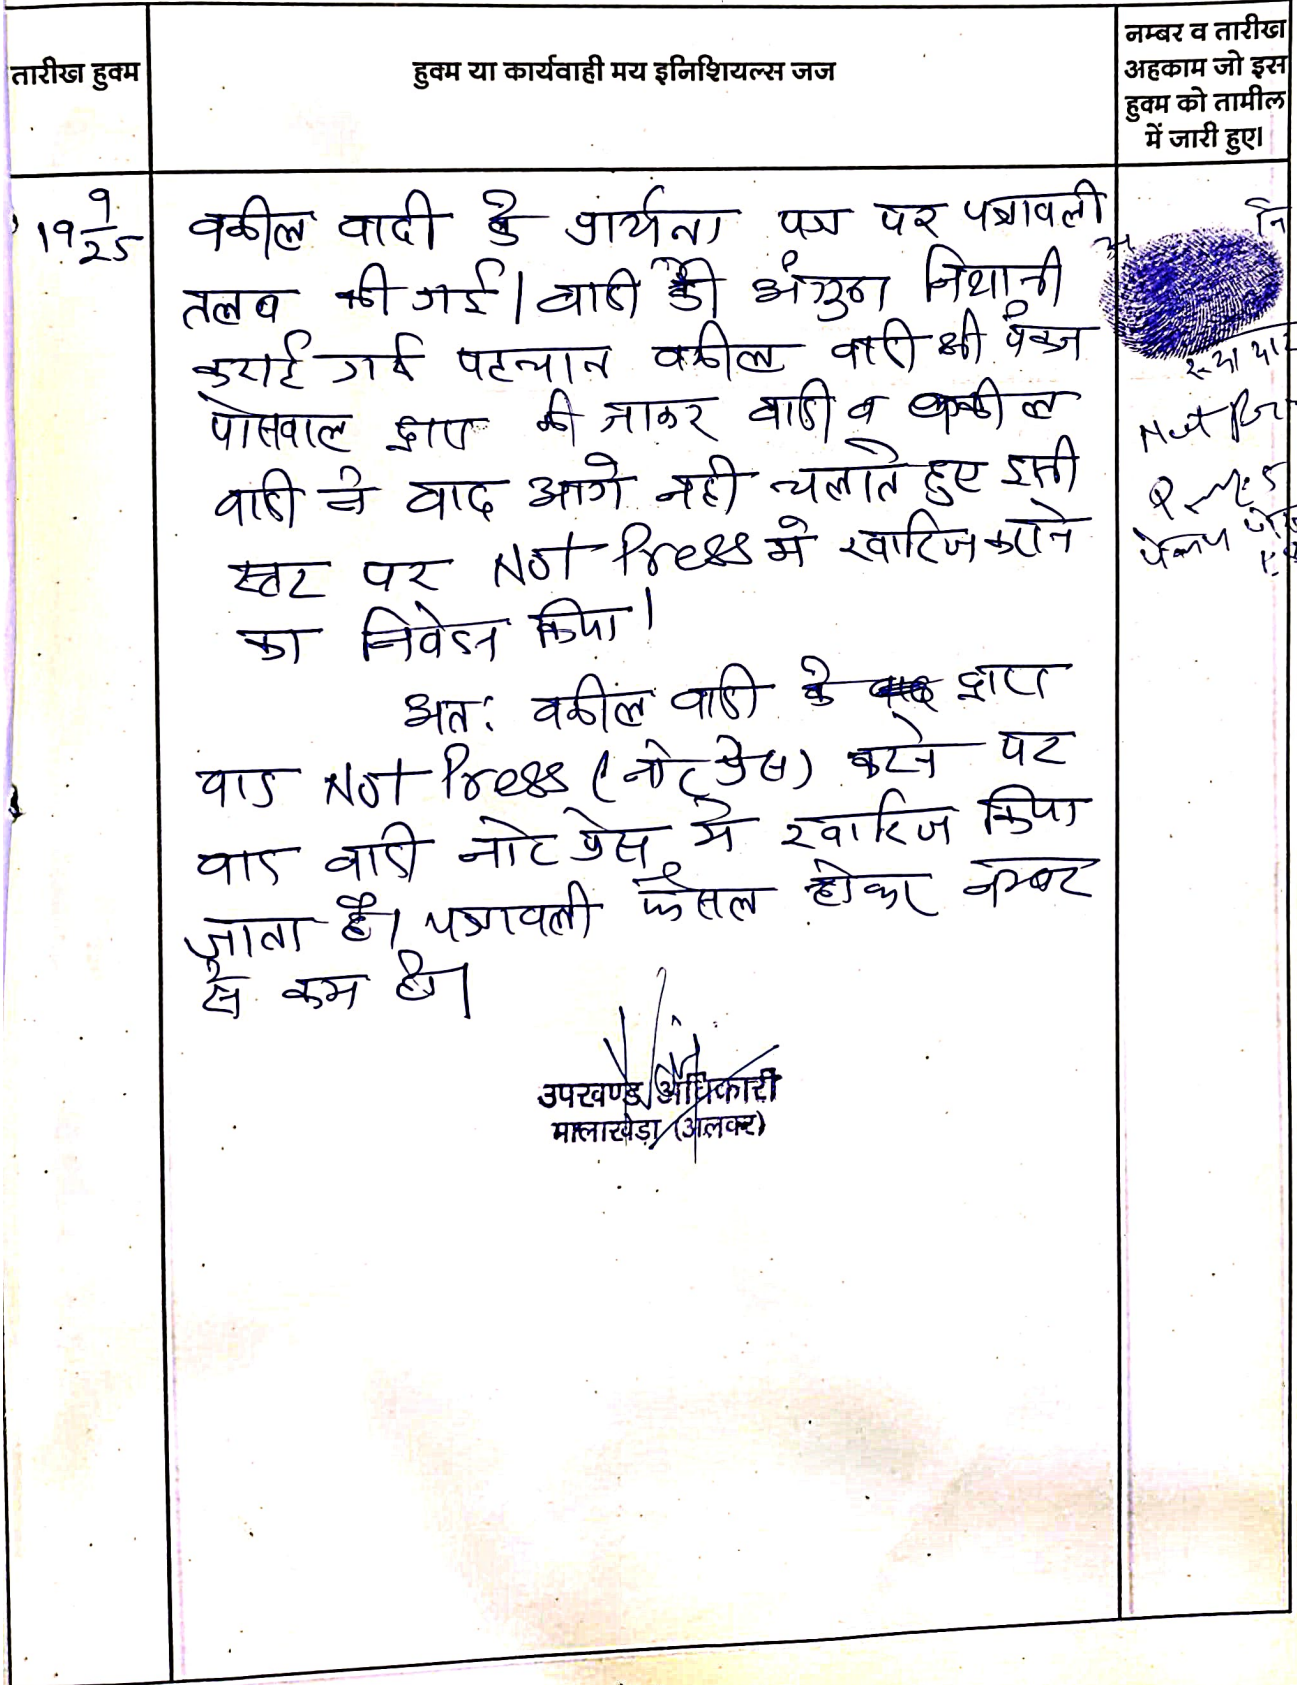 तारीख हुक्म
हुक्म या कार्यवाही मय इनिशियल्स जज
नम्बर व तारीख
अहकाम जो इस
हुक्म को तामील
में जारी हुए।
19 9/25
वकील वादी के प्रार्थना पत्र पर पत्रावली
तलब की गई। वादी की अंगुठा निशानी
कराई गई पहचान वकील वादी श्री पंकज
पोसवाल द्वारा की जाकर वादी व वकील
वादी ने वाद आगे नही चलाते हुए इसी
स्तर पर Not Press मे खारिज कराने
का निवेदन किया।
अत: वकील वादी के द्वारा
वाद Not Press (नोट प्रेस) करने पर
वाद वादी नोट प्रेस मे खारिज किया
जाता है। पत्रावली फैसल होकर नम्बर
से कम हो।
नि
Not
उपखण्ड अधिकारी
मालाखेड़ा (अलवर)